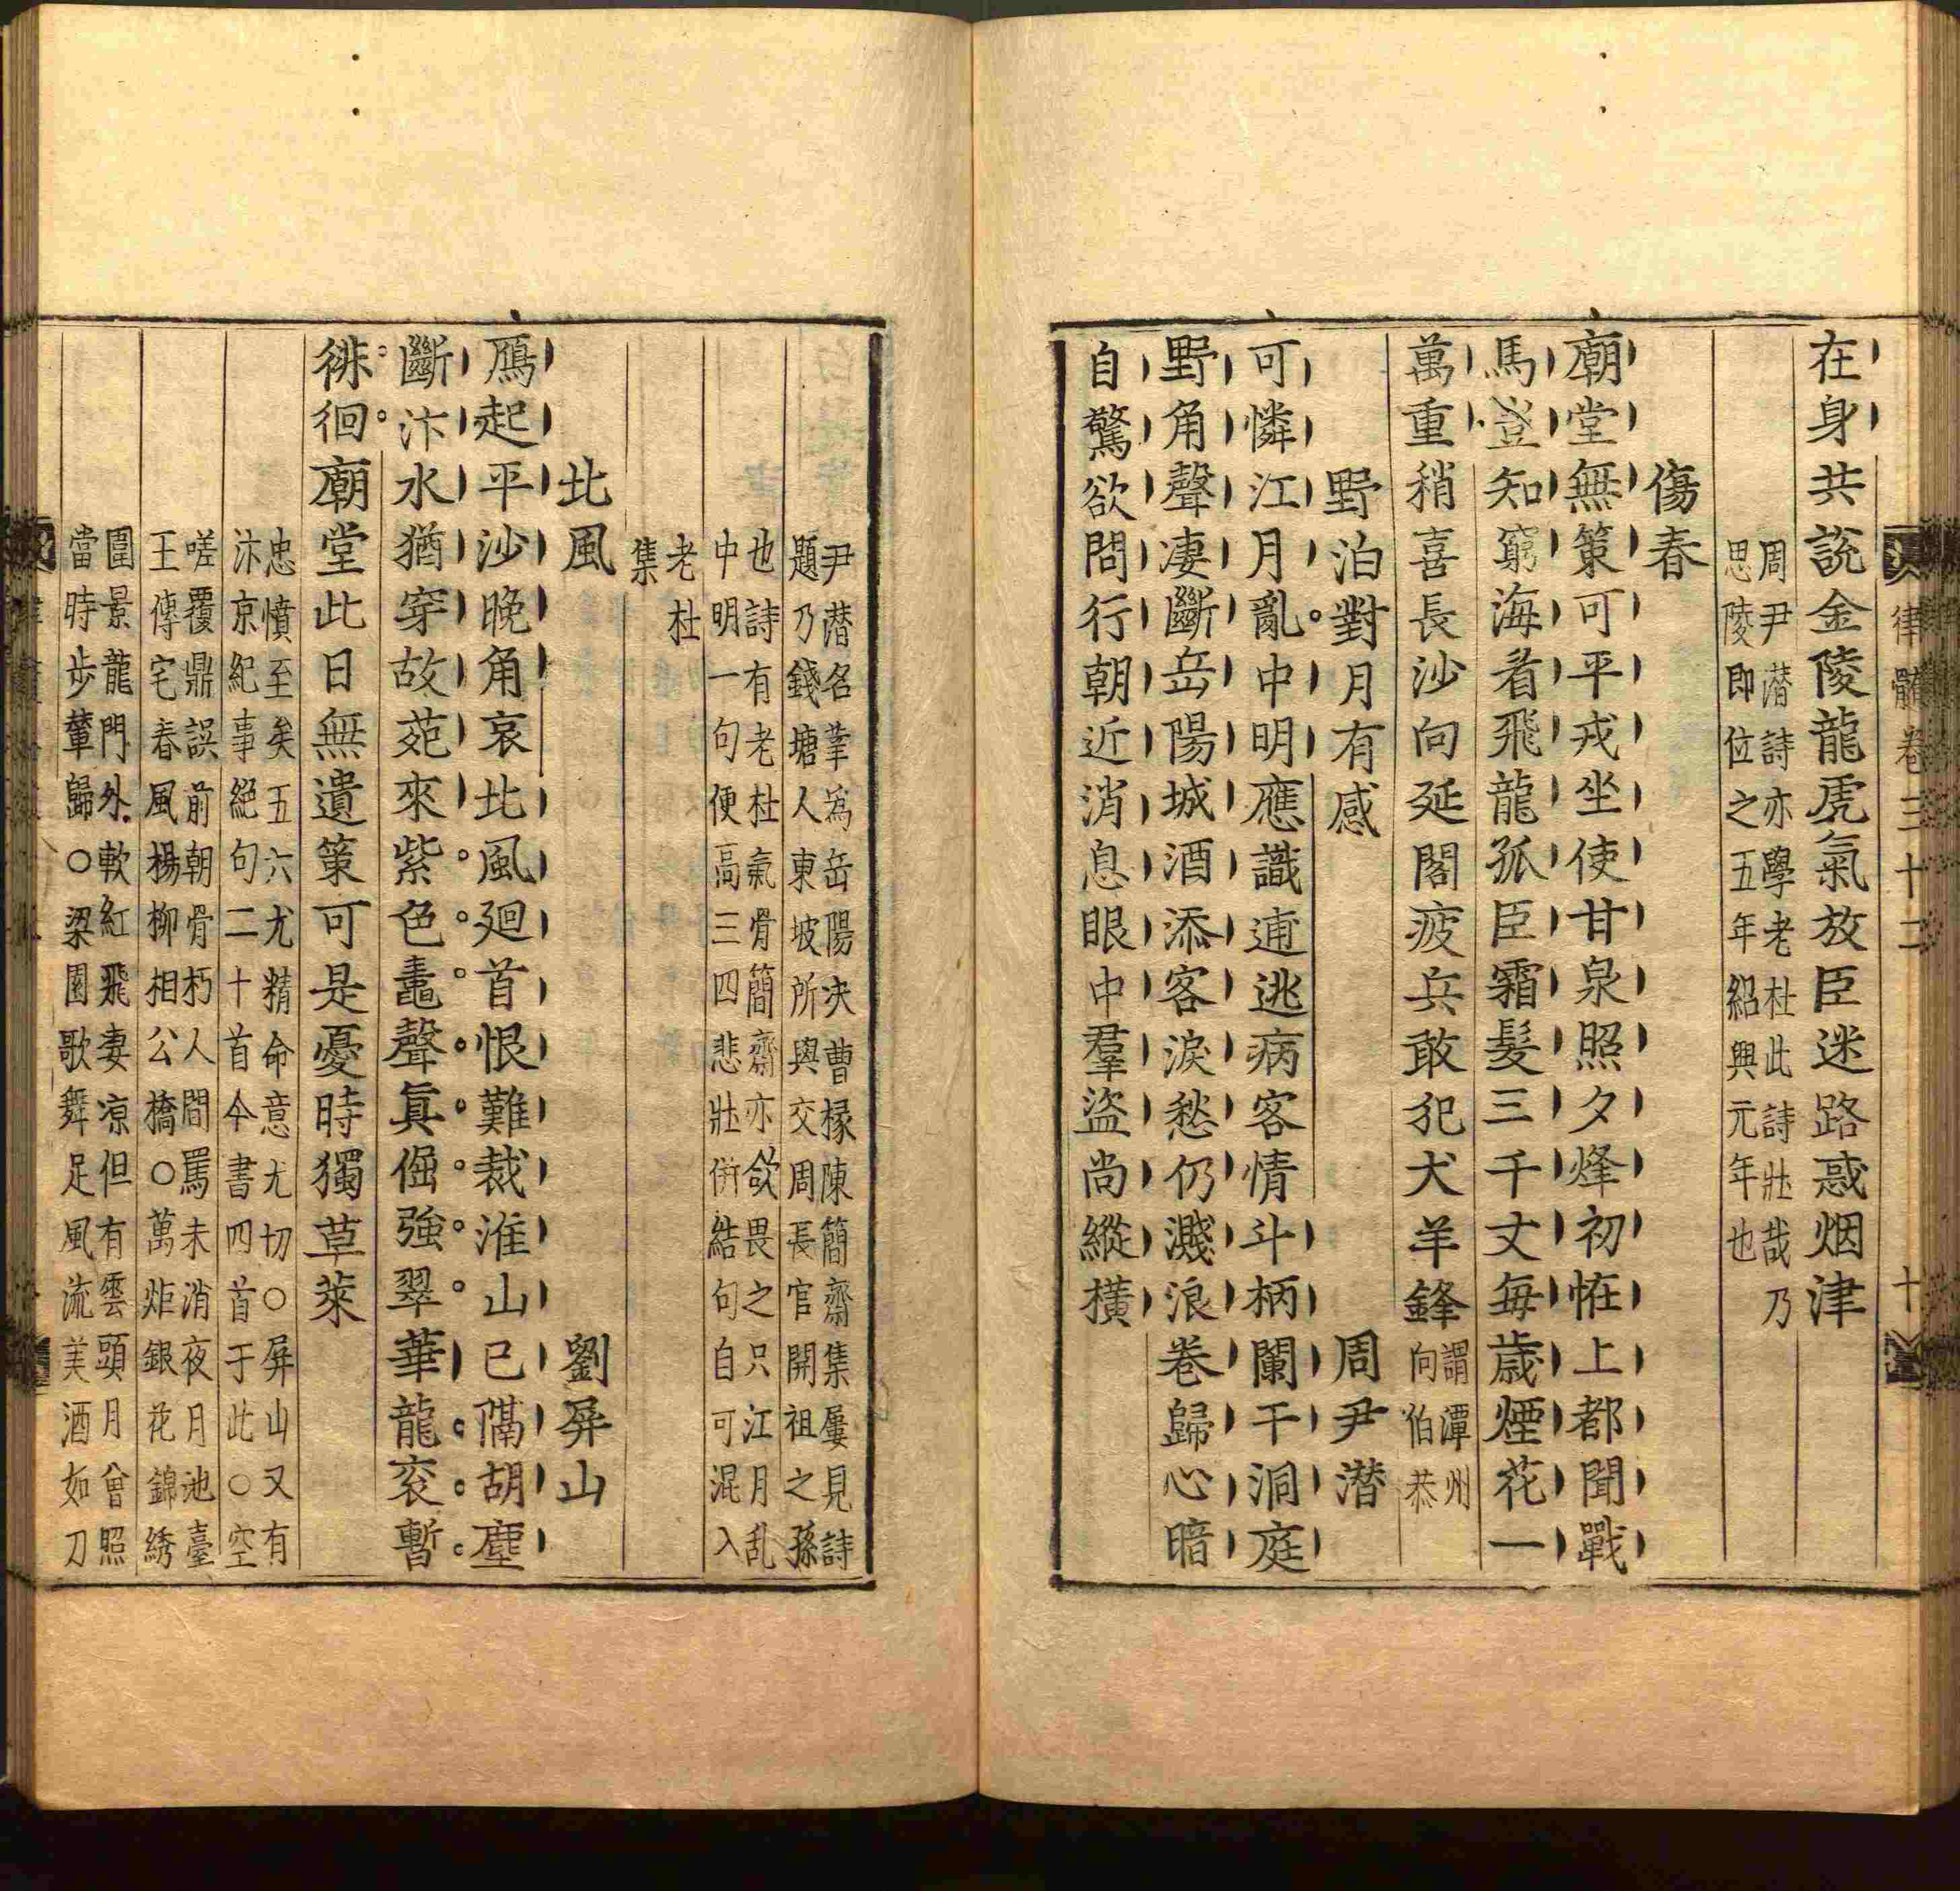 律髓卷三十二
十
在身共說金陵龍虎氣放臣迷路惑烟津
周尹潜詩亦學老杜此詩壯哉乃
思陵即位之五年紹興元年也
傷春
廟堂無策可平戎坐使甘泉照夕烽初恠上都聞戰
馬豈知窮海看飛龍孤臣霜髮三千丈每歲煙花一
萬重稍喜長沙向延閣疲兵敢犯犬羊鋒謂潭州
向伯恭
野泊對月有感 周尹潜
可憐江月亂中明應識逋逃病客情斗柄闌干洞庭
野角聲凄斷岳陽城酒添客淚愁仍濺浪卷歸心暗
自驚欲問行朝近消息眼中羣盜尚縱橫
尹潜名莘爲岳陽决曹掾陳簡齋集屢見詩
題乃錢塘人東坡所與交周長官開祖之孫
也詩有老杜氣骨簡齋亦欲畏之只江月乱
中明一句便高三四悲壯併結句自可混入
老杜
集
北風 劉屏山
鴈起平沙晚角哀北風廻首恨難裁淮山已隔胡塵
斷汴水猶穿故苑來紫色鼃聲眞倔強翠華龍衮暫
徘徊廟堂此日無遺策可是憂時獨草萊
忠憤至矣五六尤精命意尤切○屏山又有
汴京紀事絕句二十首今書四首于此○空
嗟覆鼎誤前朝骨朽人間罵未消夜月池臺
王傅宅春風楊柳相公橋○萬炬銀花錦綉
圍景龍門外軟紅飛妻凉但有雲頭月曾照
當時步輦歸○梁園歌舞足風流美酒如刀